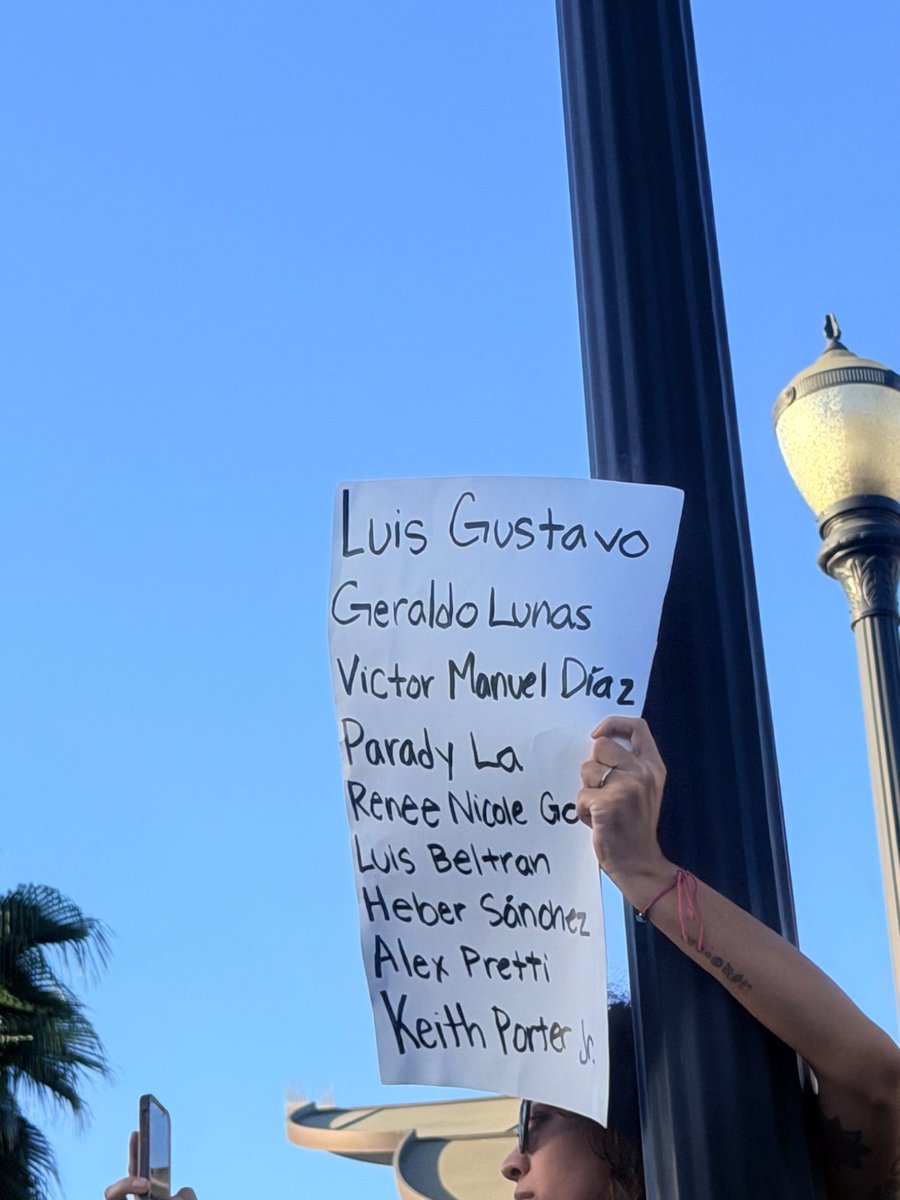 Luis Gustavo
Geraldo Lunas
Victor Manuel Díaz
Parady La
Renee Nicole Go
Luis Beltran
Heber Sánchez
Alex Pretti
Keith Porter Jr.